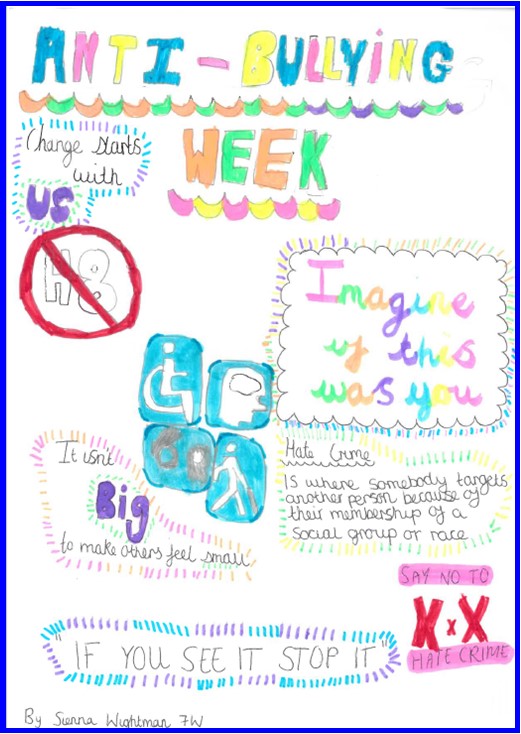 ANTI-BULLYING
WEEK
Change starts
with
US
H8
Imagine
if this
was you
It isn't
Big
to make others feel small
Hate Crime
Is where somebody targets
another person because of
their membership of a
social group or race
SAY NO TO
X x X
HATE CRIME
"IF YOU SEE IT STOP IT"
By Sienna Wightman 7W